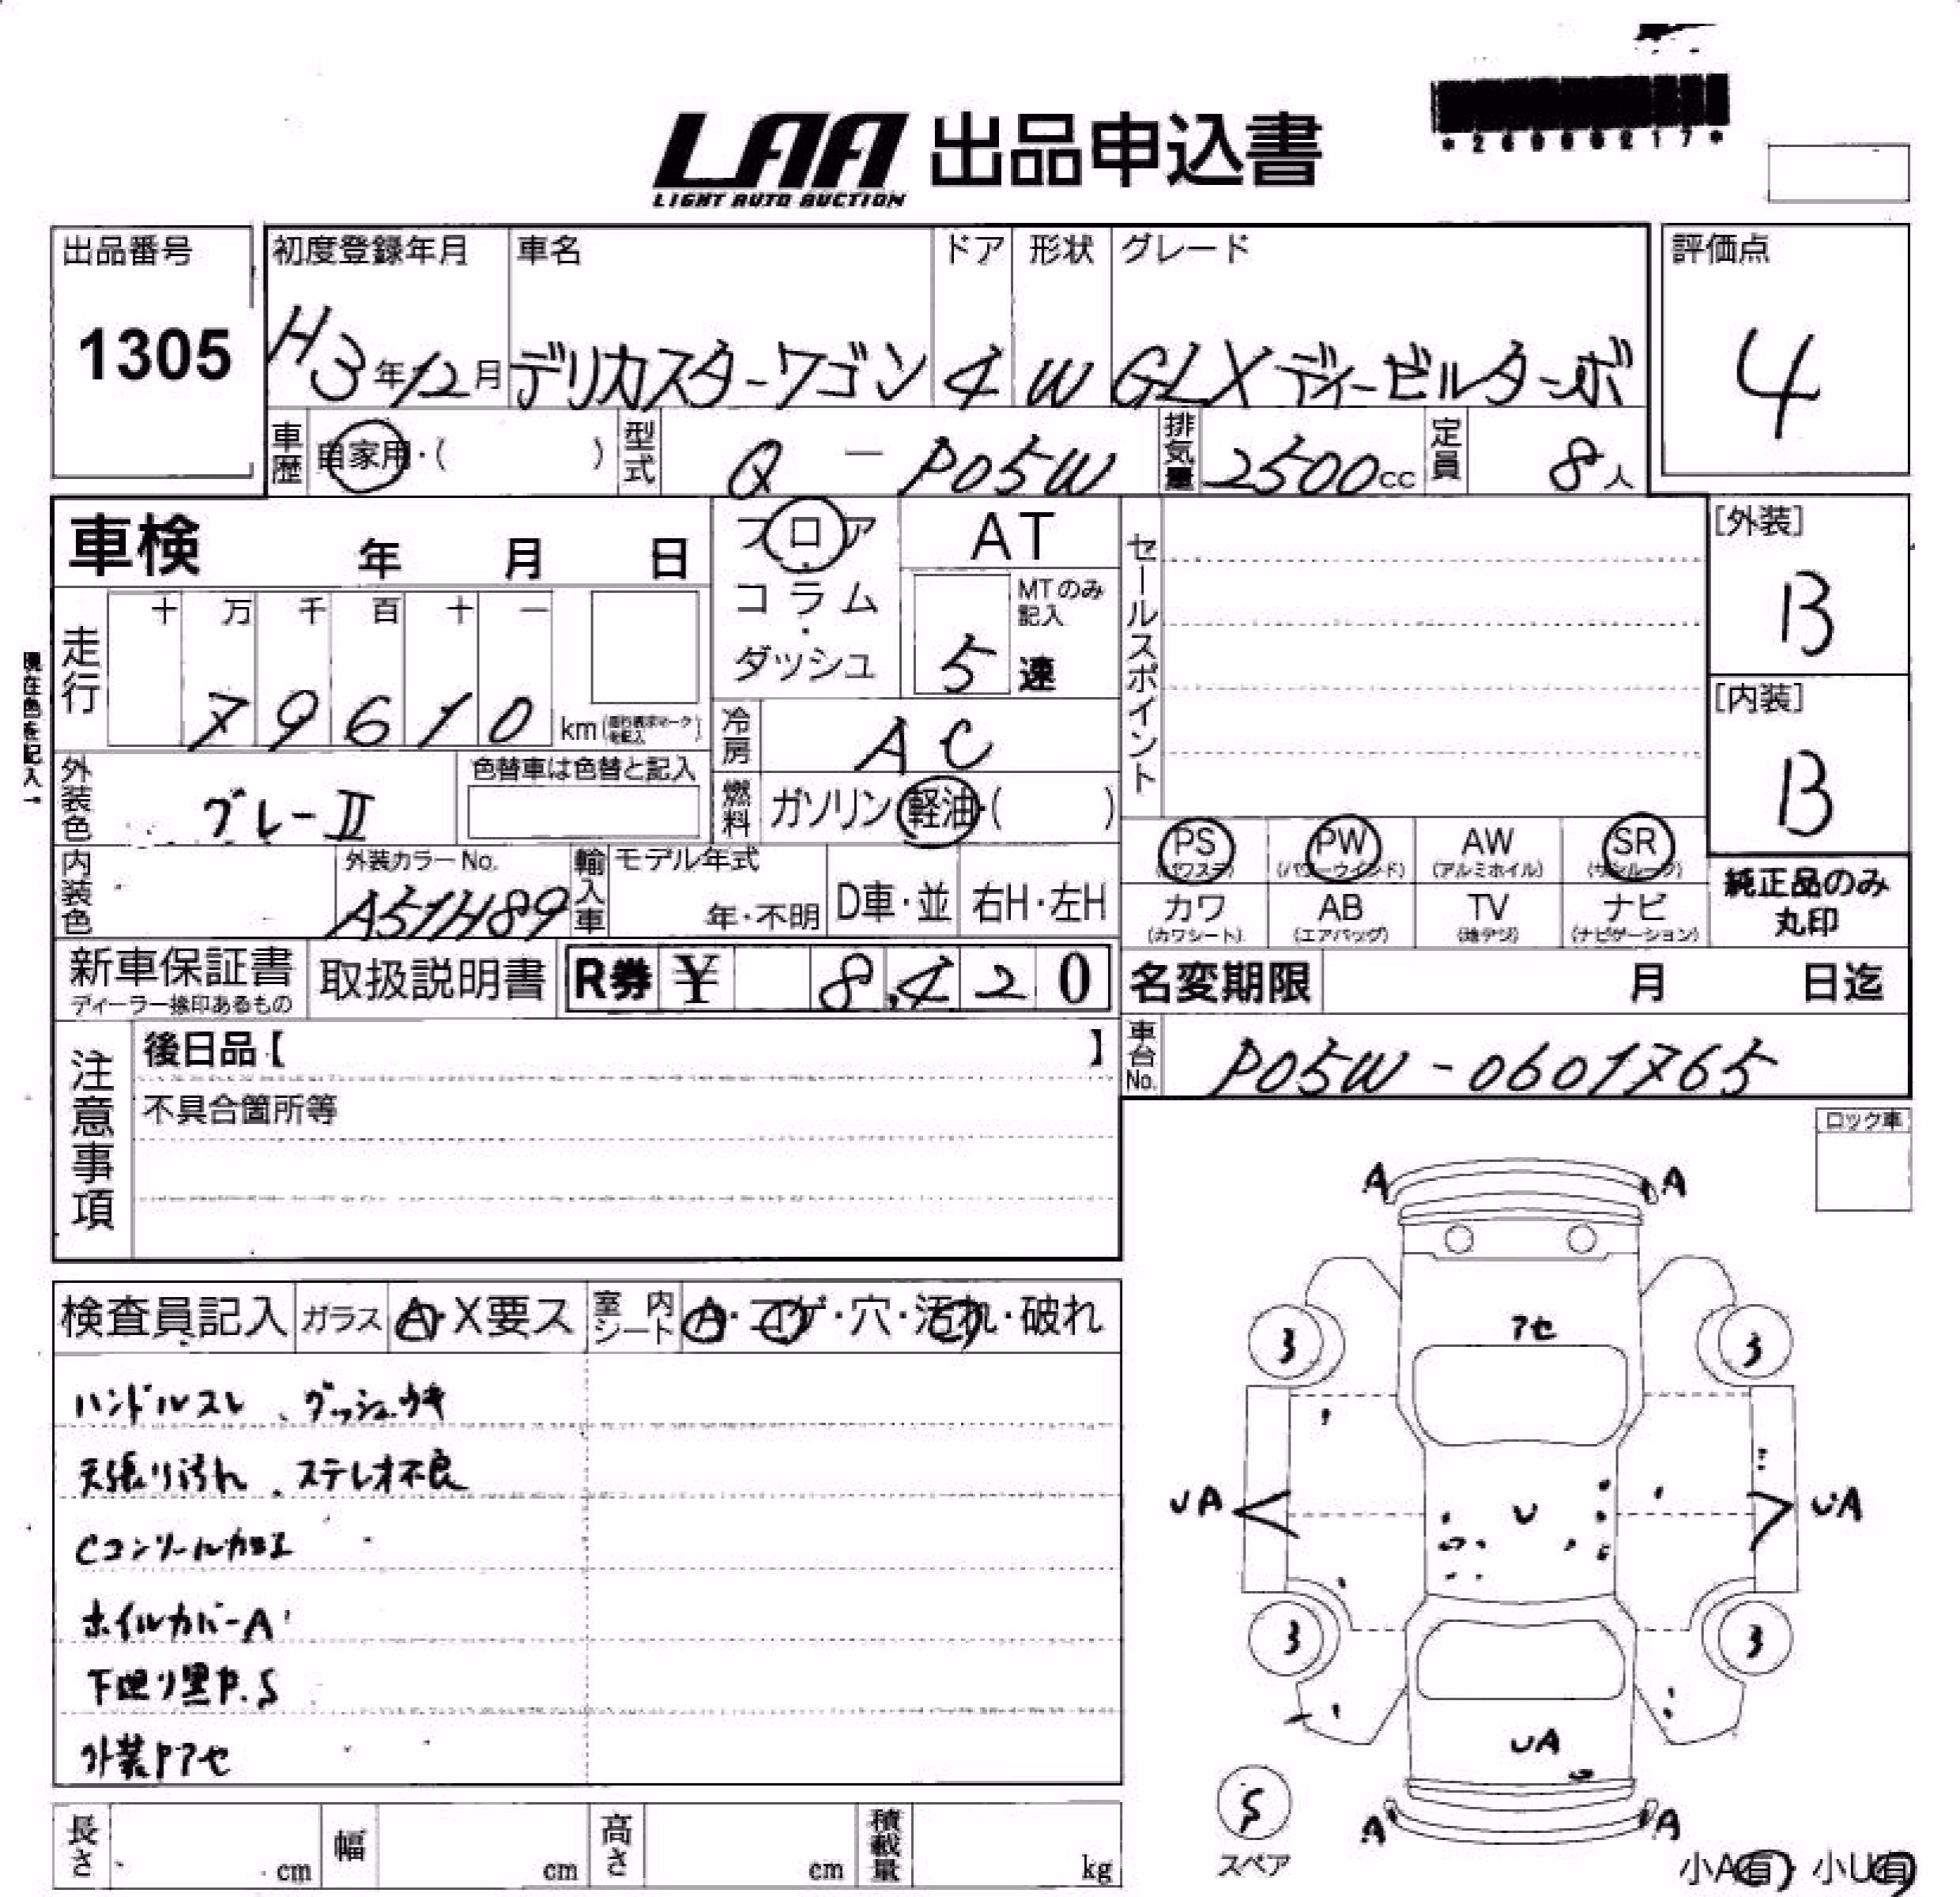 LAA 出品申込書
LIGHT AUTO AUCTION
出品番号 初度登録年月 車名 ドア 形状 グレード 評価点
1305 H3年12月 デリカスターワゴン 4 W GLXディーゼルターボ 4
車歴 自家用・( ) 型式 Q-P05W 排気量 2500cc 定員 8人
車検 年 月 日
フロア・コラム・ダッシュ
AT
MTのみ記入
5速
セールスポイント
[外装]
B
[内装]
B
走行 十 万 千 百 十 一
79610 km
現在色を記入→
冷房 AC
外装色 グレーII 色替車は色替と記入
燃料 ガソリン・軽油・( )
PS (パワステ) PW (パワーウインド) AW (アルミホイル) SR (サンルーフ)
カワ (カワシート) AB (エアバッグ) TV (地デジ) ナビ (ナビゲーション)
純正品のみ
丸印
内装色 外装カラーNo. A51H89 輸入車 モデル年式 年・不明 D車・並 右H・左H
新車保証書 取扱説明書 R券 ¥ 8,420
ディーラー捺印あるもの
名変期限 月 日迄
車台No. P05W-0601765
注意事項
後日品【 】
不具合箇所等
ロック車
検査員記入 ガラス A・X要ス 室内シート A・コゲ・穴・汚れ・破れ
ハンドルスレ、ダッシュウキ
天張り汚れ、ステレオ不良
Cコンソール加工
ホイルカバーA
下廻り黒P.S
外装Pアセ
A A
アセ
3 3
UA U UA
3 3
UA
S
スペア
A A
小A有・小U有
長さ cm 幅 cm 高さ cm 積載量 kg